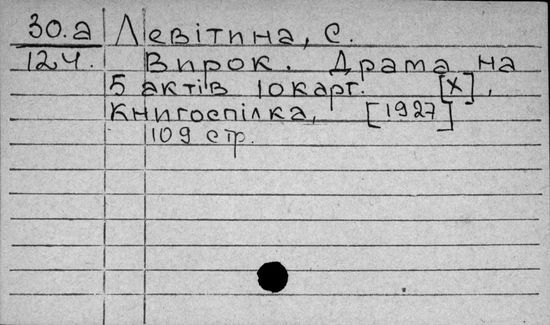 30.а Левітина, С.
124. Вирок. Драма на
5 актів 10 карт. [Х],
Книгоспілка, [1927]
109 стр.